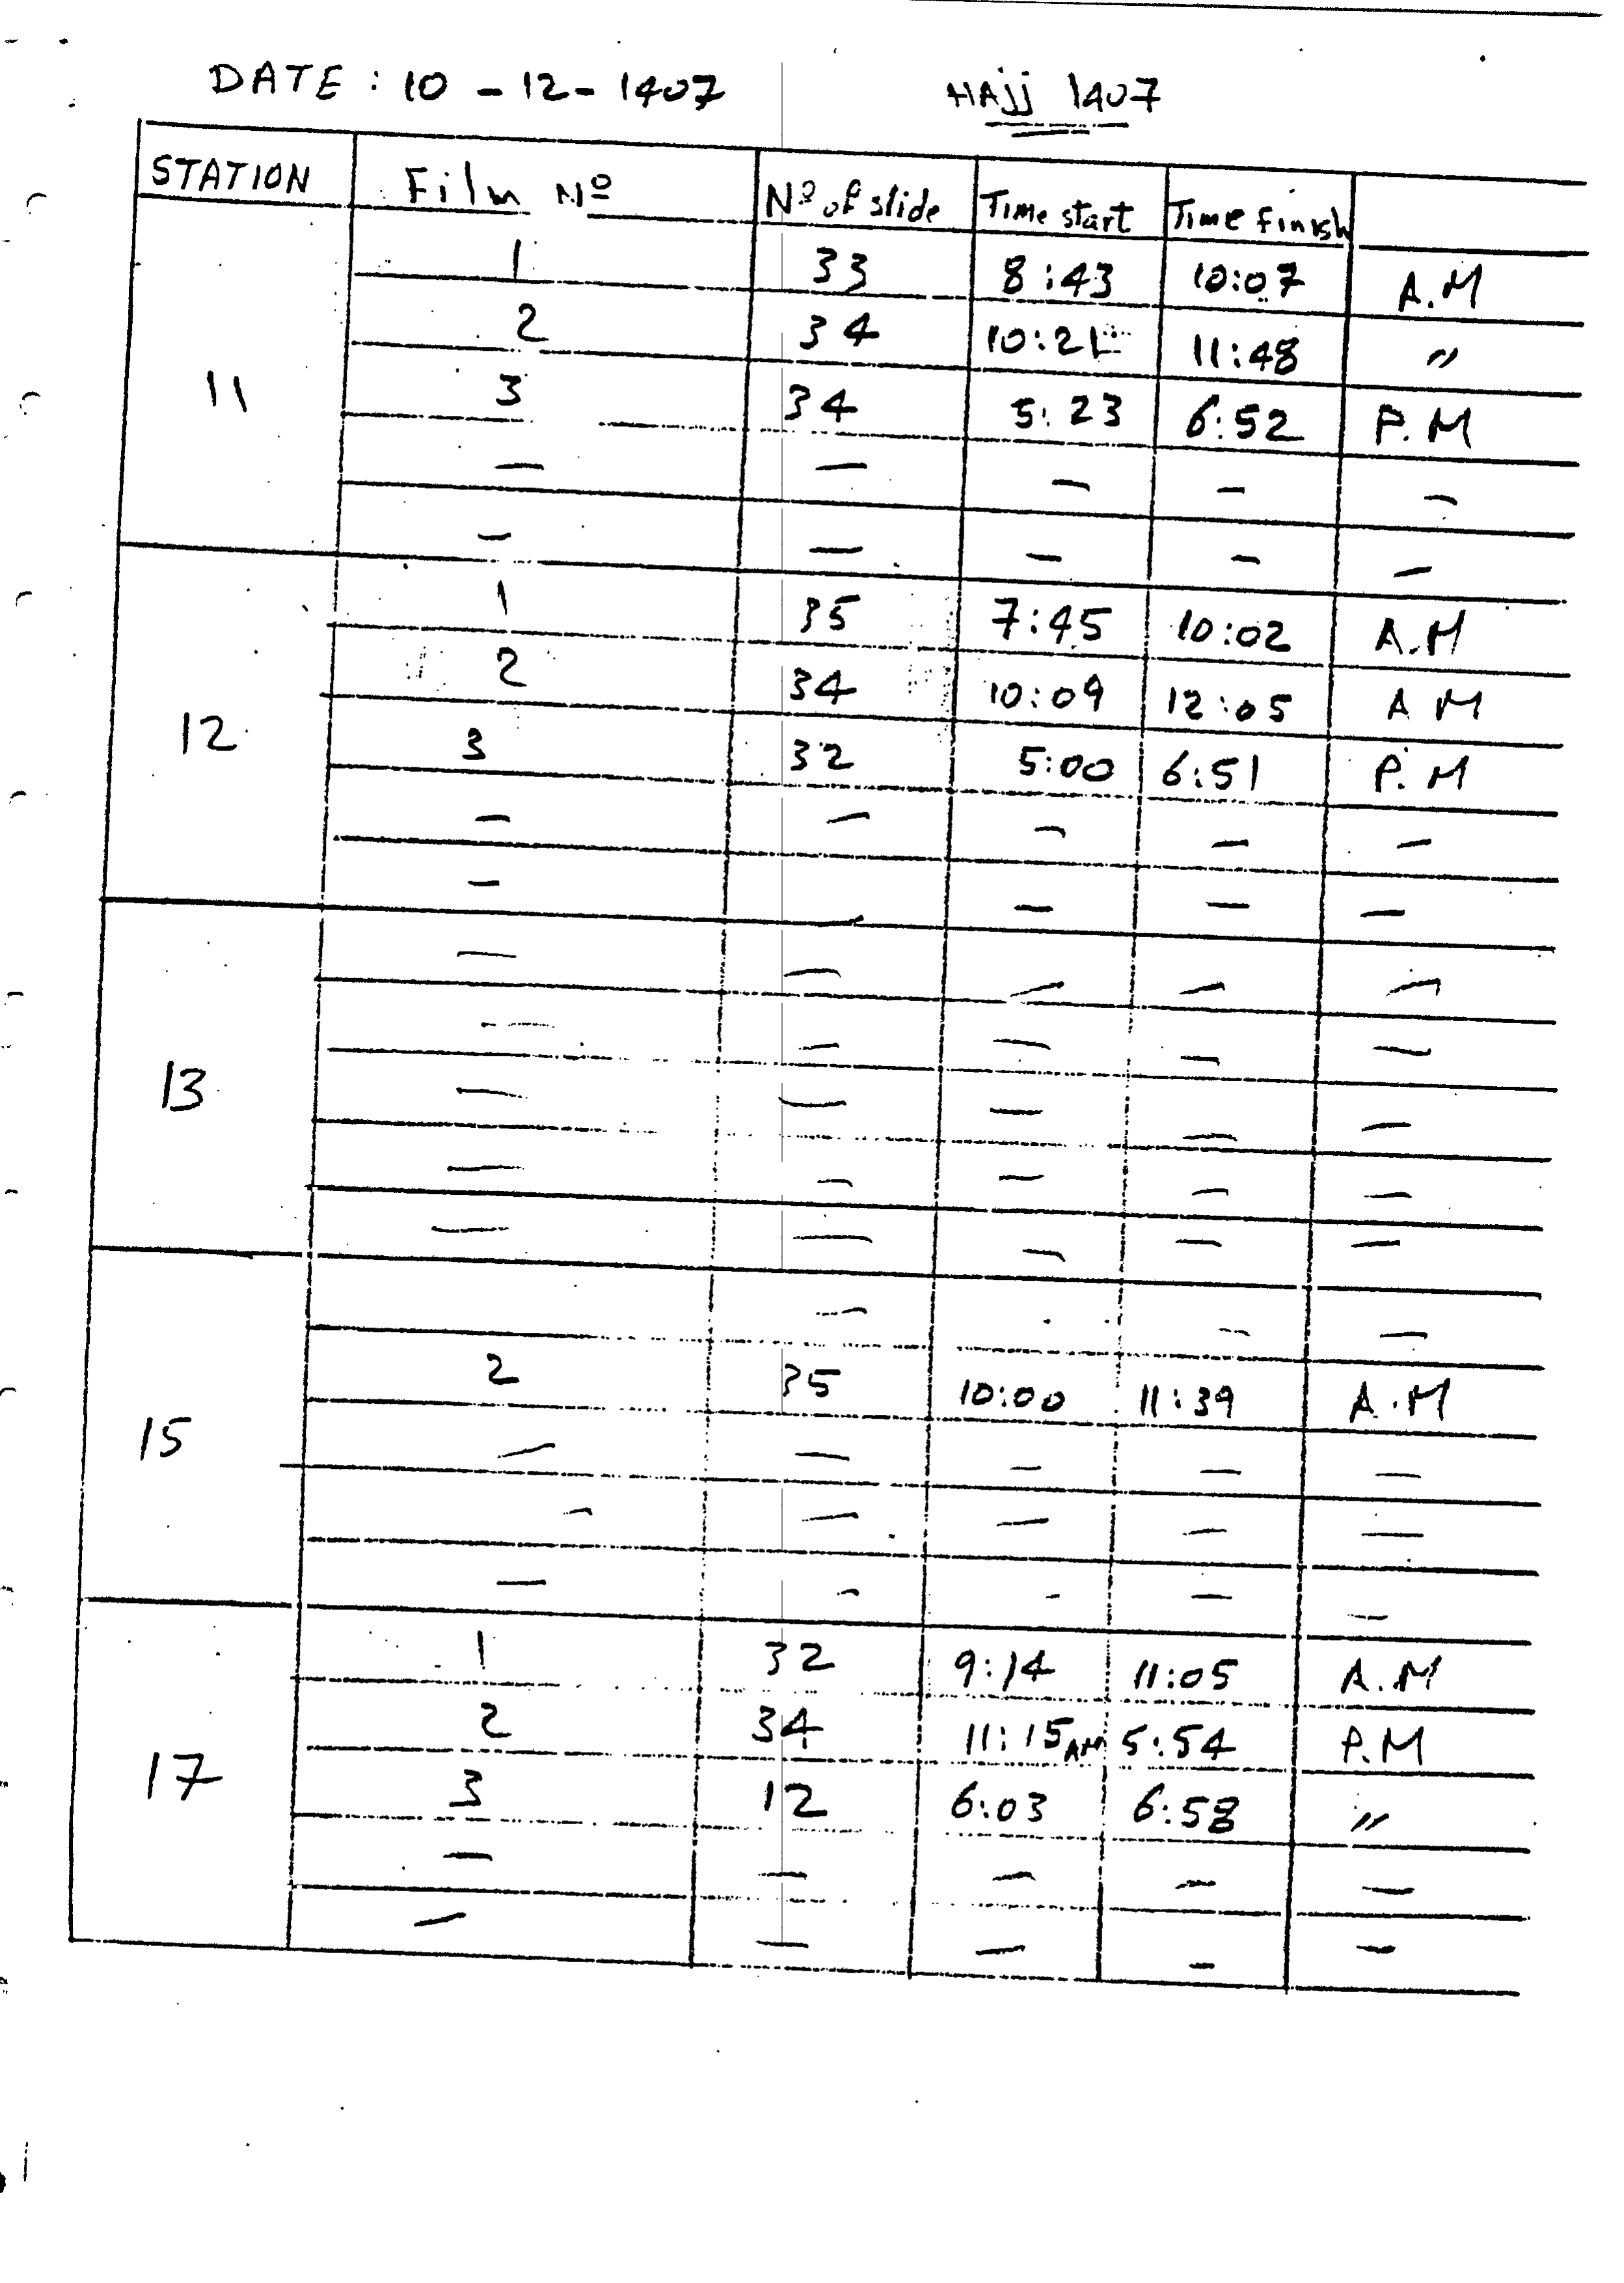 DATE : 10 - 12 - 1407 HAjj 1407
STATION Film Nº Nº of slide Time start Time Finish
11
1 33 8:43 10:07 A.M
2 34 10:21 11:48 〃
3 34 5:23 6:52 P.M
— — — — —
— — — — —
12
1 35 7:45 10:02 A.M
2 34 10:09 12:05 A M
3 32 5:00 6:51 P.M
— — — — —
— — — — —
13
— — — — —
— — — — —
— — — — —
— — — — —
— — — — —
15
— — —
2 35 10:00 11:39 A.M
— — — — —
— — — — —
— — - — —
17
1 32 9:14 11:05 A.M
2 34 11:15 AM 5:54 P.M
3 12 6:03 6:58 〃
— — — — —
— — — — —